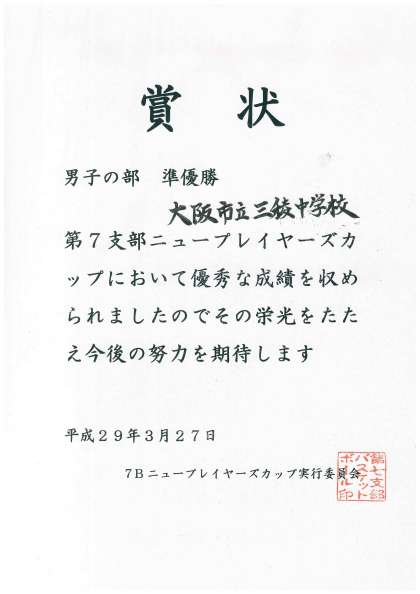 賞状
男子の部 準優勝
大阪市立三稜中学校
第7支部ニュープレイヤーズカ
ップにおいて優秀な成績を収め
られましたのでその栄光をたた
え今後の努力を期待します
平成29年3月27日
7Bニュープレイヤーズカップ実行委員会
第七支部
バスケット
ボール印